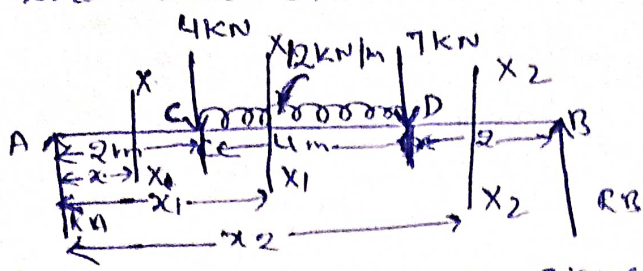 4KN X1 12KN/m 7KN
X X2
A C D B
2m 4m 2
x X X1
x1 X2 RB
RA
x2